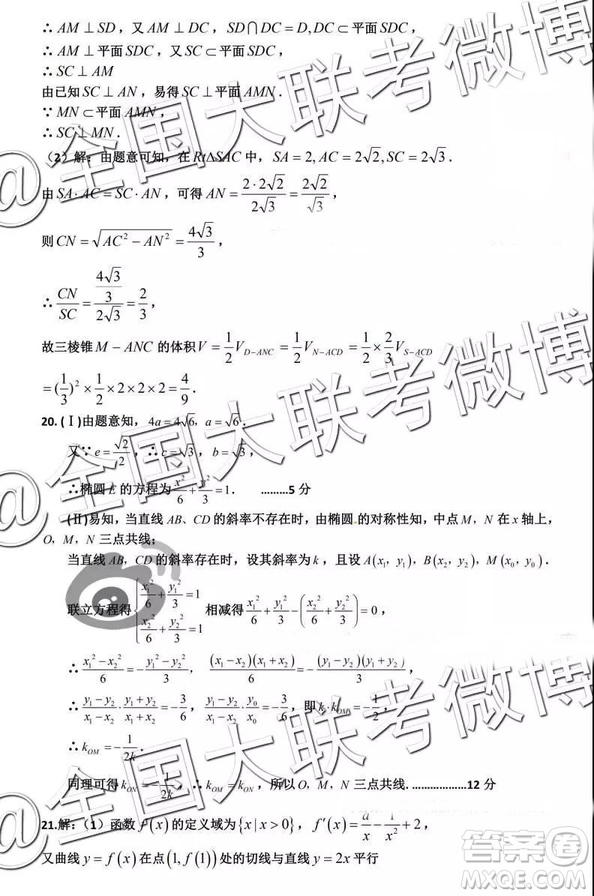 ∴ AM ⊥ SD，又 AM ⊥ DC，SD∩DC = D, DC ⊂ 平面 SDC，
∴ AM ⊥ 平面 SDC，又 SC ⊂ 平面 SDC，
∴ SC ⊥ AM
由已知 SC ⊥ AN，易得 SC ⊥ 平面 AMN．
∵ MN ⊂ 平面 AMN，
∴ SC ⊥ MN．
（2）解：由题意可知，在 RtΔSAC 中，SA = 2, AC = 2√2, SC = 2√3．
由 SA·AC = SC·AN，可得 AN = (2·2√2)/(2√3) = 2√2/√3，
则 CN = √(AC² − AN²) = 4√3/3，
∴ CN/SC = (4√3/3)/(2√3) = 2/3，
故三棱锥 M − ANC 的体积 V = 1/2 V_{D−ANC} = 1/2 V_{N−ACD} = 1/2 × 2/3 V_{S−ACD}
= (1/3)² × 1/2 × 2 × 2 × 2 = 4/9．
20. (Ⅰ)由题意知，4a = 4√6，a = √6．
又∵ e = √2/2，∴ c = √3，b = √3，
∴椭圆 E 的方程为 x²/6 + y²/3 = 1． ………5 分
(Ⅱ)易知，当直线 AB、CD 的斜率不存在时，由椭圆的对称性知，中点 M，N 在 x 轴上，
O，M，N 三点共线；
当直线 AB，CD 的斜率存在时，设其斜率为 k，且设 A(x₁，y₁)，B(x₂，y₂)，M(x₀，y₀)．
联立方程得 { x₁²/6 + y₁²/3 = 1, x₂²/6 + y₂²/3 = 1 相减得 x₁²/6 + y₁²/3 − (x₂²/6 + y₂²/3) = 0，
∴ (x₁² − x₂²)/6 = −(y₁² − y₂²)/3，(x₁ − x₂)(x₁ + x₂)/6 = −(y₁ − y₂)(y₁ + y₂)/3，
∴ (y₁ − y₂)/(x₁ − x₂) · (y₁ + y₂)/(x₁ + x₂) = −3/6，(y₁ − y₂)/(x₁ − x₂) · y₀/x₀ = −3/6，即 k·k_{OM} = −1/2，
∴ k_{OM} = −1/(2k)．
同理可得 k_{ON} = −1/(2k)，∴ k_{OM} = k_{ON}，所以 O，M，N 三点共线. ………………12 分
21.解：（1）函数 f(x) 的定义域为 {x | x > 0}，f′(x) = a/x − 1/x² + 2，
又曲线 y = f(x) 在点 (1, f(1)) 处的切线与直线 y = 2x 平行
@全国大联考微博
@全国大联考微博
答案圈
MXQE.COM